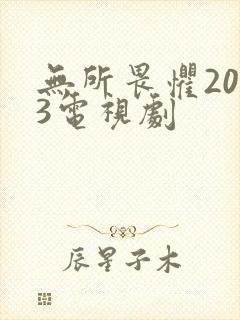 無所畏懼20
3電視劇
辰星子木